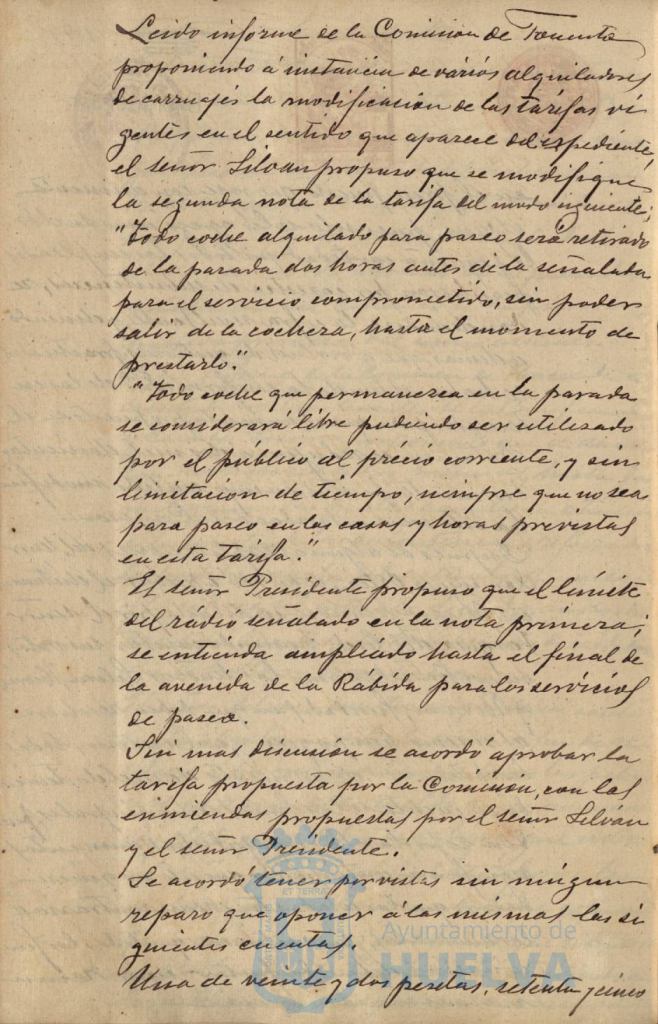 Leido informe de la Comision de Fomento
proponiendo á instáncia de váriós alquiladores
de carruajés la modificación de las tarifas vi
gentes en el sentido que aparece del expediente,
el señor Silvan propuso que se modifique
la segunda nota de la tarifa del modo siguiente;
"Todo coche alquilado para paseo será retirado
de la parada dos horas antes de la señalada
para el servicio comprometido, sin poder
salir de la cochera, hasta el momento de
prestarlo."
"Todo coche que permanezca en la parada
se considerará libre pudiendo ser utilizado
por el público al précio corriente, y sin
limitacion de tiempo, siempre que no sea
para paseo en los casos y horas previstas
en esta tarifa."
El señor Presidente propuso que el límite
del rádio señalado en la nota primera;
se entienda ampliado hasta el final de
la avenida de la Rábida para los servicios
de paseo.
Sin mas discusión se acordó aprobar la
tarifa propuesta por la Comisión, con las
enmiendas propuestas por el señor Silván
y el señor Presidente.
Se acordó tener por vistas sin ningun
reparo que oponer á las mismas las si
guientes cuentas.
Una de veinte y dos pesetas, setenta y cinco
Ayuntamiento de
HUELVA